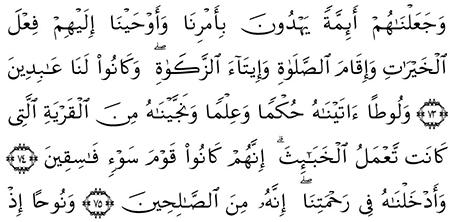 وَجَعَلْنَٰهُمْ أَئِمَّةً يَهْدُونَ بِأَمْرِنَا وَأَوْحَيْنَآ إِلَيْهِمْ فِعْلَ
ٱلْخَيْرَٰتِ وَإِقَامَ ٱلصَّلَوٰةِ وَإِيتَآءَ ٱلزَّكَوٰةِ ۖ وَكَانُوا۟ لَنَا عَٰبِدِينَ
﴿٧٣﴾ وَلُوطًا ءَاتَيْنَٰهُ حُكْمًا وَعِلْمًا وَنَجَّيْنَٰهُ مِنَ ٱلْقَرْيَةِ ٱلَّتِى
كَانَت تَّعْمَلُ ٱلْخَبَٰٓئِثَ ۗ إِنَّهُمْ كَانُوا۟ قَوْمَ سَوْءٍ فَٰسِقِينَ ﴿٧٤﴾
وَأَدْخَلْنَٰهُ فِى رَحْمَتِنَآ ۖ إِنَّهُۥ مِنَ ٱلصَّٰلِحِينَ ﴿٧٥﴾ وَنُوحًا إِذْ